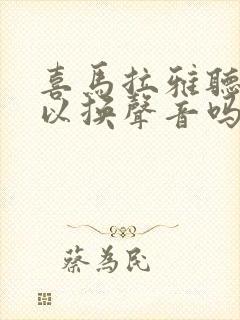 喜馬拉雅聽
以換聲音嗎
蔡為民